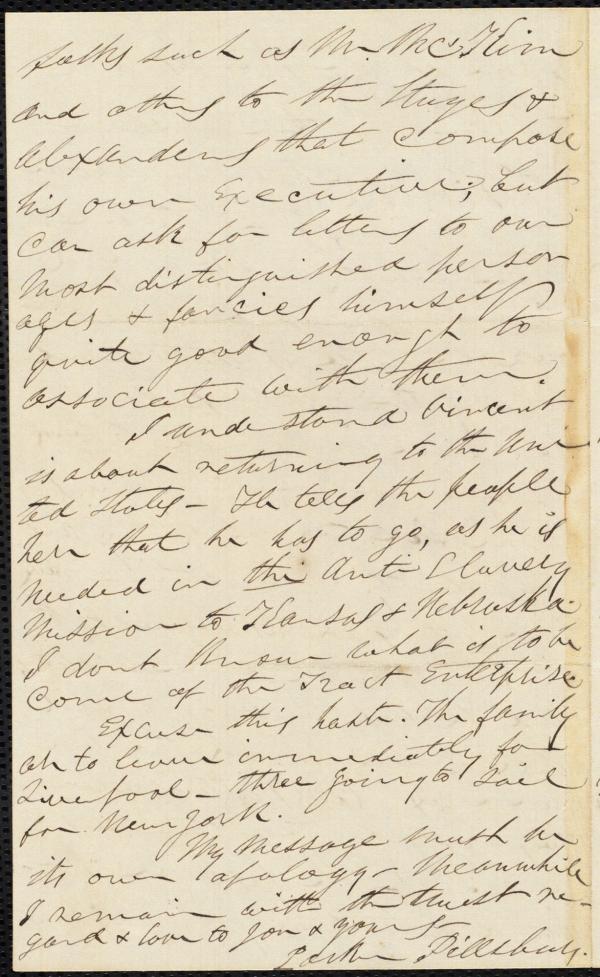 folks such as Mr. McKim
and others to the Stuges &
Alexanders that compose
his own Executive; but
can ask for letters to our
most distinguished person
ages & fancies himself
quite good enough to
associate with them.
I understand Vincent
is about returning to the Uni
ted States - He tells the people
here that he has to go, as he is
needed in the Anti Slavery
Mission to Kansas & Nebraska.
I dont know what is to be
come of the Tract Enterprise
Excuse this haste. The family
are to leave immediately for
Liverpool - three going to sail
for New York.
My Message must be
its own apology - Meanwhile
I remain with the truest re-
gard & love to you & yours
Parker Pillsbury.